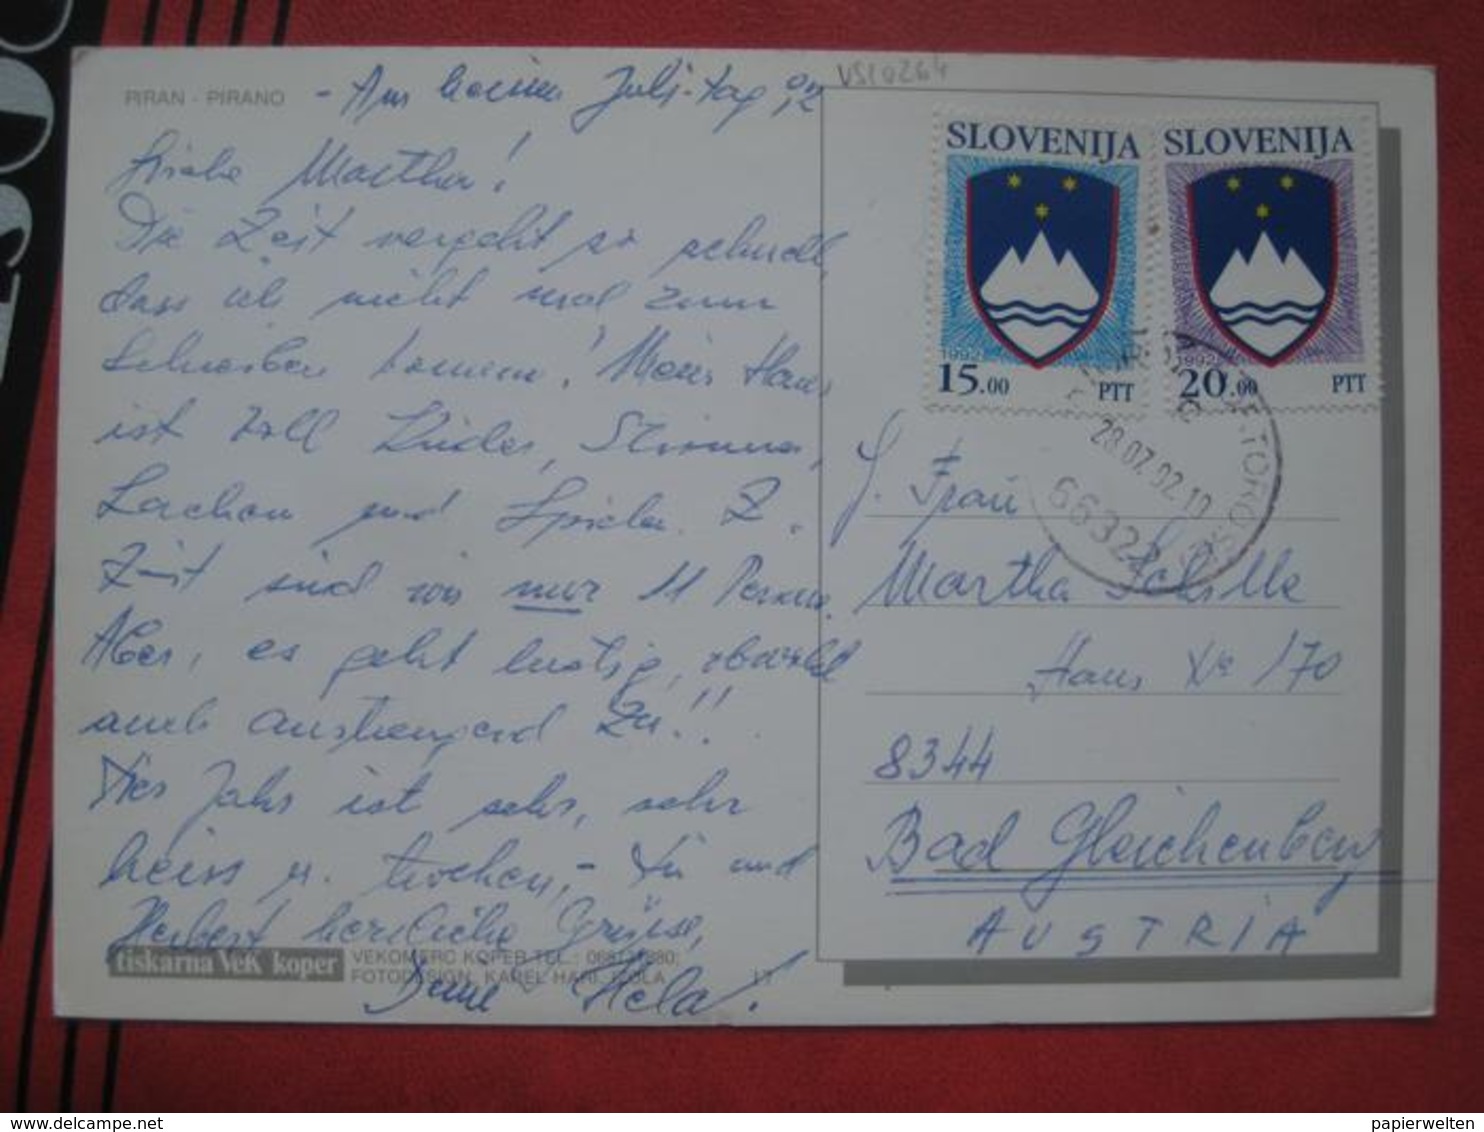 VSL0264
PIRAN - PIRANO
- Am heissen Juli-tag 92
Liebe Martha!
Die Zeit vergeht so schnell,
dass ich nicht mal zum
Schreiben komme! Mein Haus
ist voll Kinder, Stimmen,
Lachen und Spielen. Z.
Zeit sind wir nur 11 Person.
Aber, es geht lustig, obwohl
auch anstrengend zu!!
Dies Jahr ist sehr, sehr
heiss u. trocken,- Dir und
Herbert herzliche Grüsse,
Deine Hela!
tiskarna VeK koper
VEKOMERC KOPER TEL.:
FOTODESIGN, KAREL HARI, IZOLA
17
SLOVENIJA
1992
15.00 PTT
SLOVENIJA
1992
20.00 PTT
28.07.92.10
66322
Frau
Martha Schille
Haus Nr 170
8344
Bad Gleichenberg
AUSTRIA
delcampe.net
papierwelten